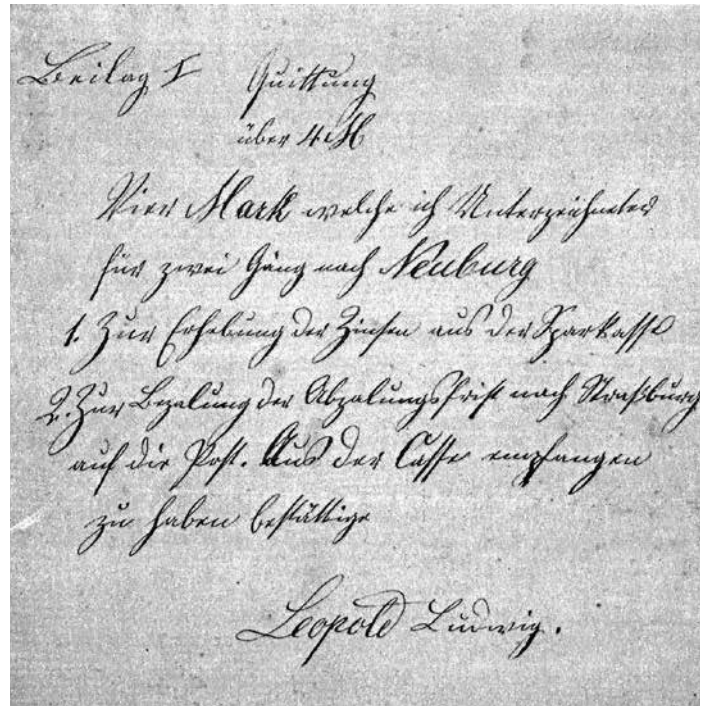 Beilag I Quittung
über 4 M
Vier Mark welche ich Unterzeichneter
für zwei Gäng nach Neuburg
1. Zur Erhebung der Zinsen aus der Sparkasse
2. Zur Bezalung der Abzalungsfrist nach Straßburg
auf die Post. Aus der Casse empfangen
zu haben bestättige
Leopold Ludwig.